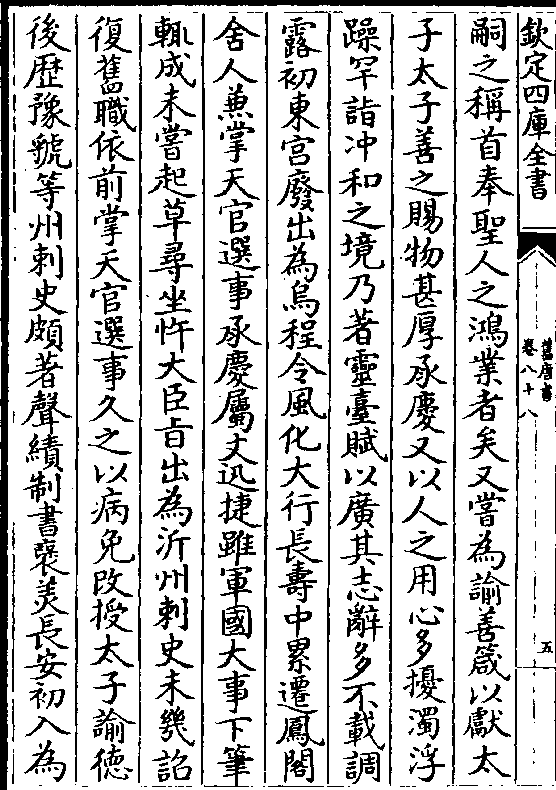 欽定四庫全書
舊唐書
卷八十八
五
嗣之稱首奉聖人之鴻業者矣又嘗為諭善箴以獻太
子太子善之賜物甚厚承慶又以人之用心多擾濁浮
躁罕詣沖和之境乃著靈臺賦以廣其志辭多不載調
露初東宮廢出為烏程令風化大行長壽中累遷鳳閣
舍人兼掌天官選事承慶屬文迅捷雖軍國大事下筆
輒成未嘗起草尋坐忤大臣旨出為沂州刺史未幾詔
復舊職依前掌天官選事久之以病免改授太子諭德
後歷豫虢等州刺史頗著聲績制書褒美長安初入為